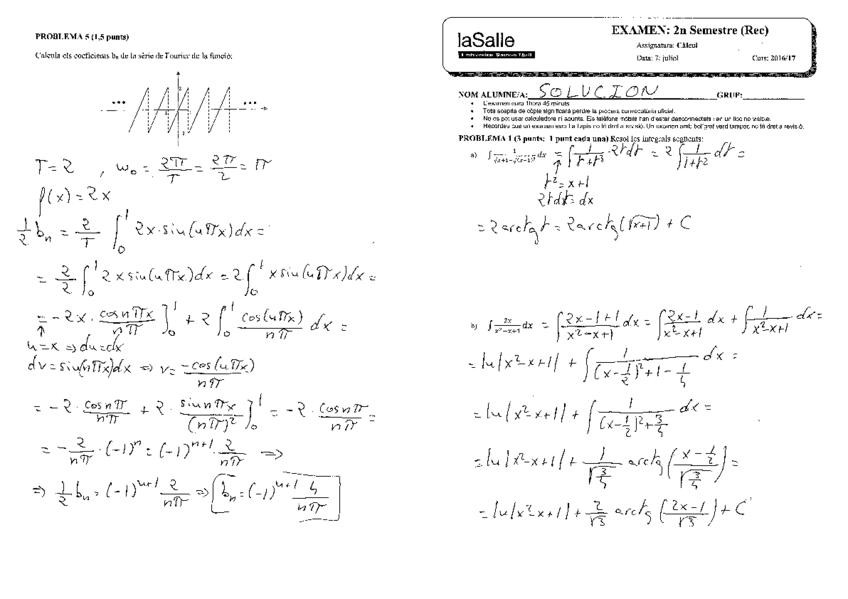 PROBLEMA 5 (1,5 punts)
Calcula els coeficients bₙ de la sèrie de Fourier de la funció:
••• •••
T = 2 , ω₀ = 2π/T = 2π/2 = π
f(x) = 2x
1/2 bₙ = 2/T ∫₀¹ 2x·sin(nπx)dx =
= 2/2 ∫₀¹ 2x sin(nπx)dx = 2∫₀¹ x sin(nπx)dx =
= -2x · cos nπx/nπ ]₀¹ + 2 ∫₀¹ cos(nπx)/nπ dx =
u = x ⇒ du = dx
dv = sin(nπx)dx ⇒ v = -cos(nπx)/nπ
= -2 · cos nπ/nπ + 2 · sin nπx/(nπ)² ]₀¹ = -2 · cos nπ/nπ =
= -2/nπ · (-1)ⁿ = (-1)ⁿ⁺¹ · 2/nπ ⇒
⇒ 1/2 bₙ = (-1)ⁿ⁺¹ 2/nπ ⇒ bₙ = (-1)ⁿ⁺¹ 4/nπ
laSalle
EXAMEN: 2n Semestre (Rec)
Assignatura: Càlcul
Data: 7 juliol Curs: 2016/17
NOM ALUMNE/A: SOLUCION GRUP:
• L'examen dura 1hora 45 minuts
• Tota sospita de còpia significarà perdre la pròxima convocatòria oficial.
• No es pot usar calculadora ni apunts. Els telèfons mòbils han d'estar desconnectats i en un lloc no visible.
• Recordeu que un examen fet a llapis no té dret a revisió. Un examen amb bolígraf verd tampoc no té dret a revisió.
PROBLEMA 1 (3 punts: 1 punt cada una) Resol les integrals següents:
a) ∫ 1/(√(x+1)+√(x+1)³) dx = ∫ 1/(t+t³) · 2t dt = 2 ∫ 1/(1+t²) dt =
t² = x+1
2t dt = dx
= 2 arctg t = 2 arctg(√(x+1)) + C
b) ∫ 2x/(x²-x+1) dx = ∫ (2x-1+1)/(x²-x+1) dx = ∫ (2x-1)/(x²-x+1) dx + ∫ 1/(x²-x+1) dx =
= ln|x²-x+1| + ∫ 1/((x-1/2)²+1-1/4) dx =
= ln|x²-x+1| + ∫ 1/((x-1/2)²+3/4) dx =
= ln|x²-x+1| + 1/√(3/4) arctg((x-1/2)/√(3/4)) =
= ln|x²-x+1| + 2/√3 arctg((2x-1)/√3) + C